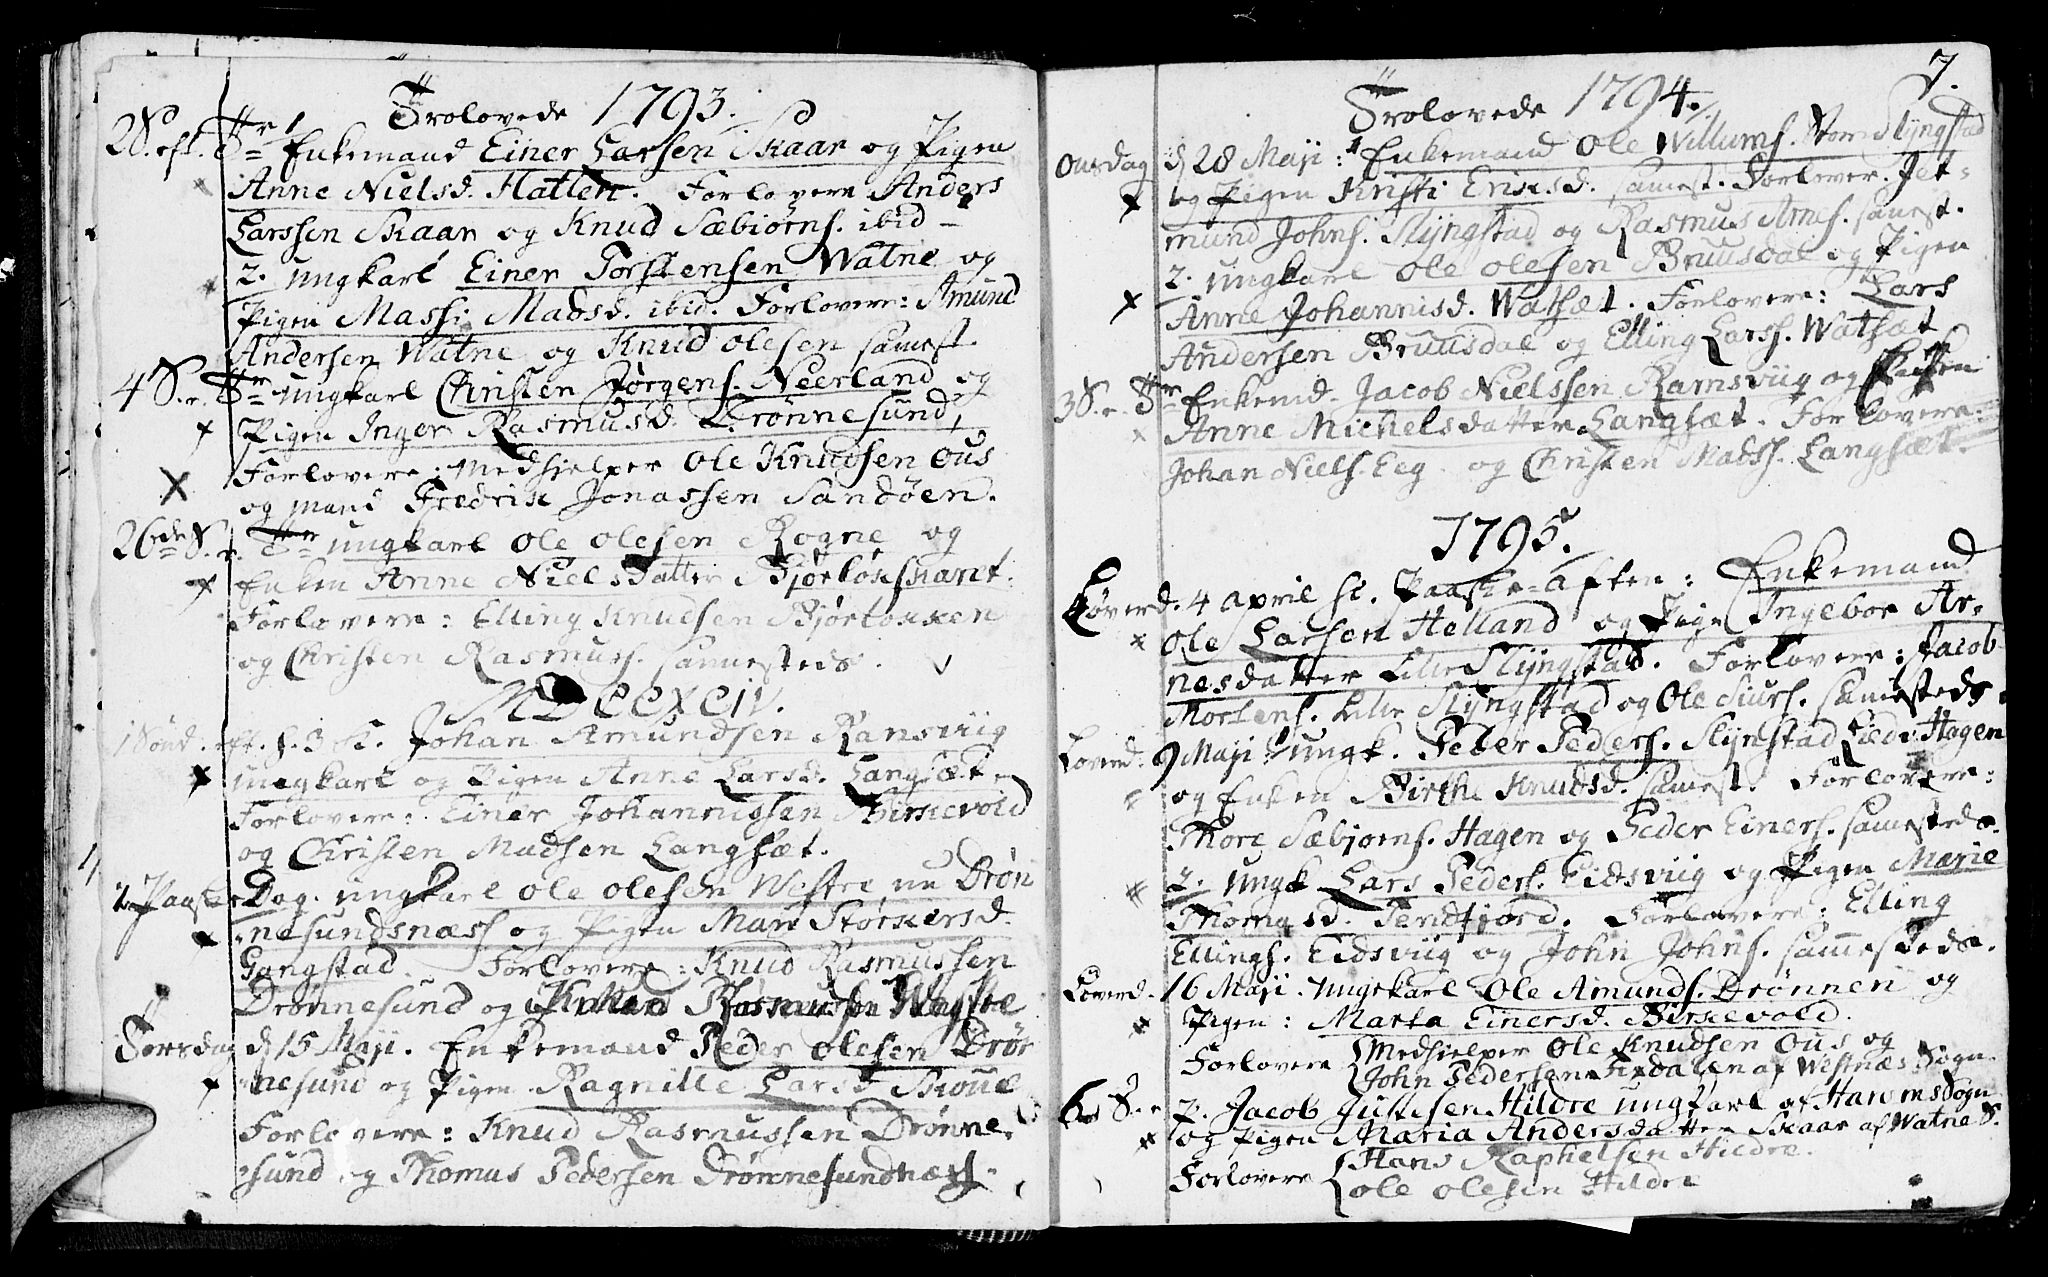 Trolovede 1793.
2 S. eft. Tr. 1 Enkemand Einer Larsen Skaar og Pigen
Anne Nielsd. Hatlen. Forlovere Anders
Larssen Skaar og Knud Sæbiørns. ibid -
2. ungkarl Einer Torstensen Watne og
Pigen Massi Madsd. ibid. Forlovere: Amund
Andersen Watne og Knud Olesen samest.
4 S. e. Tr. ungkarl Christen Jørgens. Neerland og
Pigen Inger Rasmusd. Drønnesund,
Forlovere: Medhielper Ole Knudsen Ous
og Mand Fredrik Jonassen Sandøen.
26de S. e. Tr. ungkarl Ole Olesen Rogne og
Enken Anne Nielsdatter Bjørkokskaret.
Forlovere: Elling Knudsen Bjørkoxen
og Christen Rasmus. sammesteds.
MDCCXCIV.
1 Sønd. eft. h. 3 K. Johan Amundsen Ransviig
ungkarl og Pigen Anne Larsd. Langsæt.
Forlovere: Einer Johannissen Birkevold
og Christen Madsen Langsæt.
2. Paaske Dag. ungkarl Ole Olesen Westre nu Drøn
nesundsnæss og Pigen Mari Storkersd.
Gangstad. Forlovere: Knud Rasmussen
Drønnesund og Rasmussen
Torsdag d. 15 Maji. Enkemand Peder Olesen Drøn
nesund og Pigen Ragnille Larsd. Skoue
Forlovere: Knud Rasmussen Drønne,
sund og Thomas Pedersen Drønnesundnæss.
7.
Trolovede 1794.
Onsdag d. 28 Maji: 1 Enkemand Ole Willums. Store Slyngstad
og Pigen Kristi Eriksd. samest. Forlover. Jet-
mund Johns. Slyngstad og Rasmus Arnes. samest.
2. ungkarl Ole Olesen Bruusdal og Pigen
Anne Johannisd. Watsæt. Forlovere: Lars
Andersen Bruusdal og Elling Larss. Watsæt
3 S. e. Tr. Enkemd. Jacob Nielssen Ramsviig og
Anne Michelsdatter Langsæt. Forlovere:
Johan Niels. Eeg og Christen Madss. Langsæt.
1795.
Løverd. 4 April H. Paaske-Aften: Enkemand
Ole Larsen Helland og Pige Ingebor Ar-
nesdatter Lille Slyngstad. Forlovere: Jacob
Mortens. Lille Slyngstad og Ole Siurs. samesteds
Løverd. 9 Maji: 1 ungk. Peder Peders. Slynstad Hagen
og Enken Birthe Knudsd. samest. Forlovere:
Thore Sæbjørns. Hagen og Peder Einers. samesteds.
2. ungk Lars Peders. Eidsviig og Pigen Marie
Thomasd. Tendfjord. Forlovere: Elling
Ellings. Eidsviig og John Johns. sammesteds.
Løverd. 16 Maji. ungekarl Ole Amunds. Drønnen og
Pigen: Marta Einersd. Birkevold.
Forlovere Medhielper Ole Knudsen Ous og
John Pedersen af Westnæs Sogn.
6 S. e P. Jacob Hildre ungkarl af Harams Sogn
og Pigen Maria Andersdatter Skaar af Watne S.
Forlovere Hans Raphelsen Hildre.
Ole Olesen Hildre